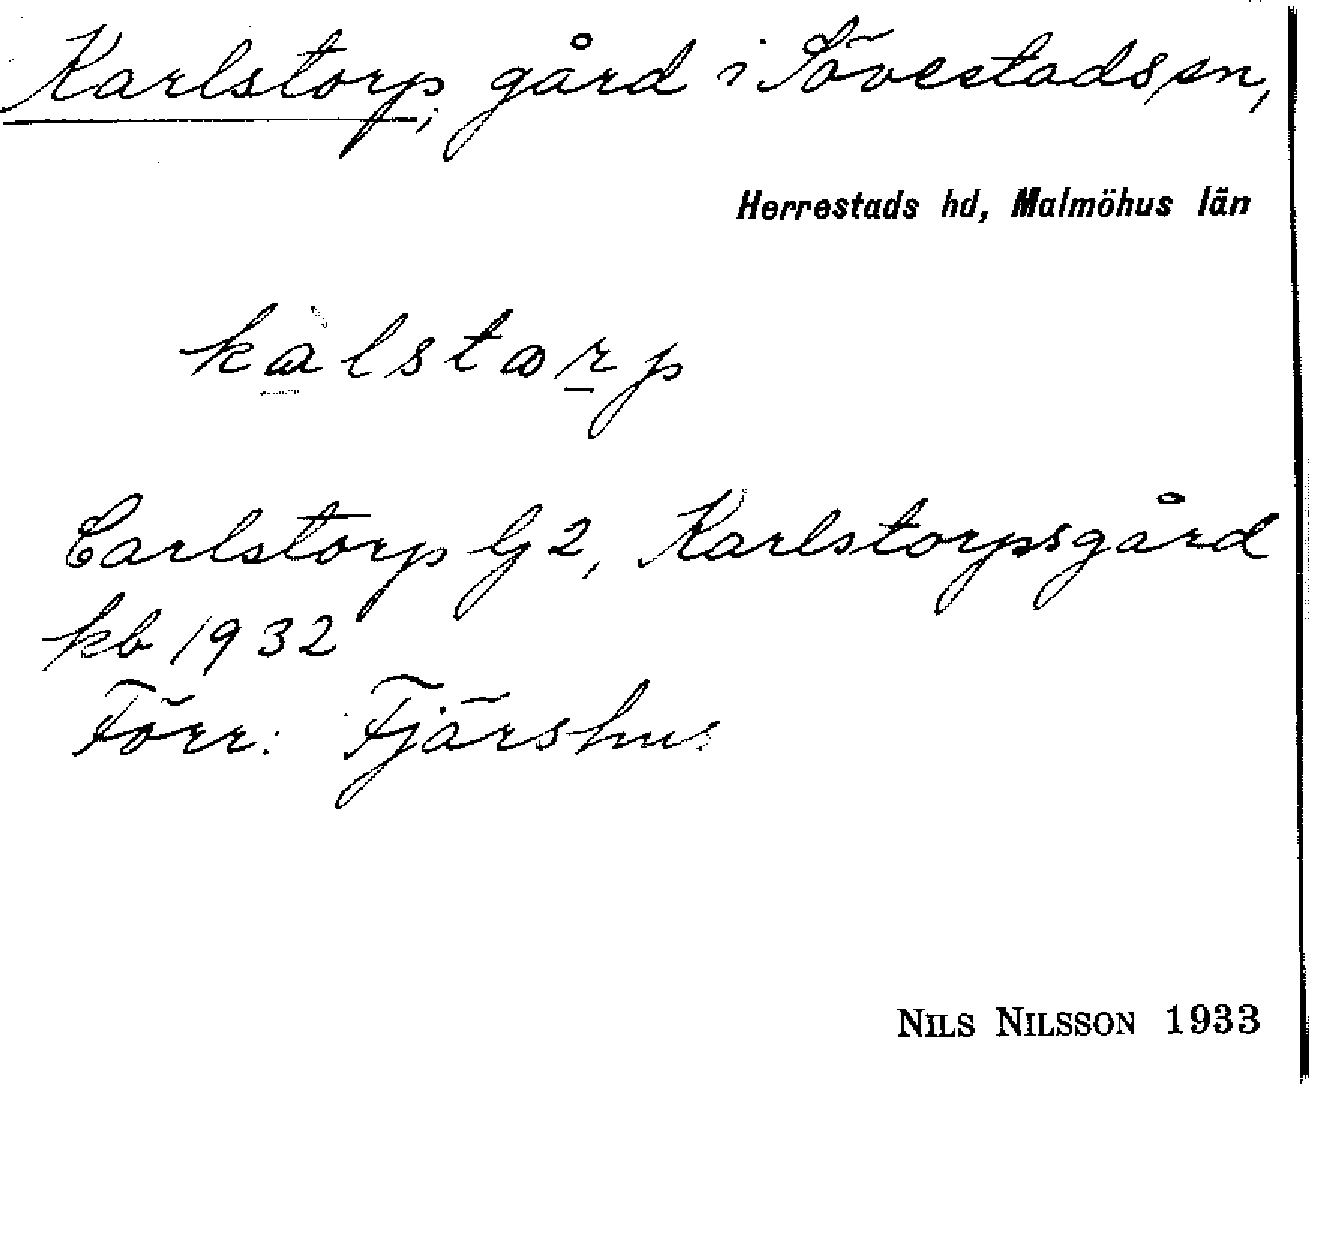 Karlstorp, gård i Sövestads sn,
Herrestads hd, Malmöhus län
kàlstorp
Carlstorp G 2, Karlstorpsgård
kb 1932
Förr: Fjärshus
NILS NILSSON 1933